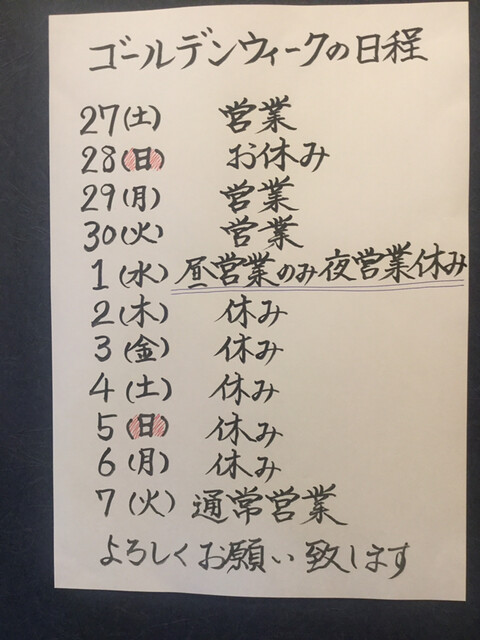 ゴールデンウィークの日程
27(土) 営業
28(日) お休み
29(月) 営業
30(火) 営業
1(水) 昼営業のみ夜営業休み
2(木) 休み
3(金) 休み
4(土) 休み
5(日) 休み
6(月) 休み
7(火) 通常営業
よろしくお願い致します